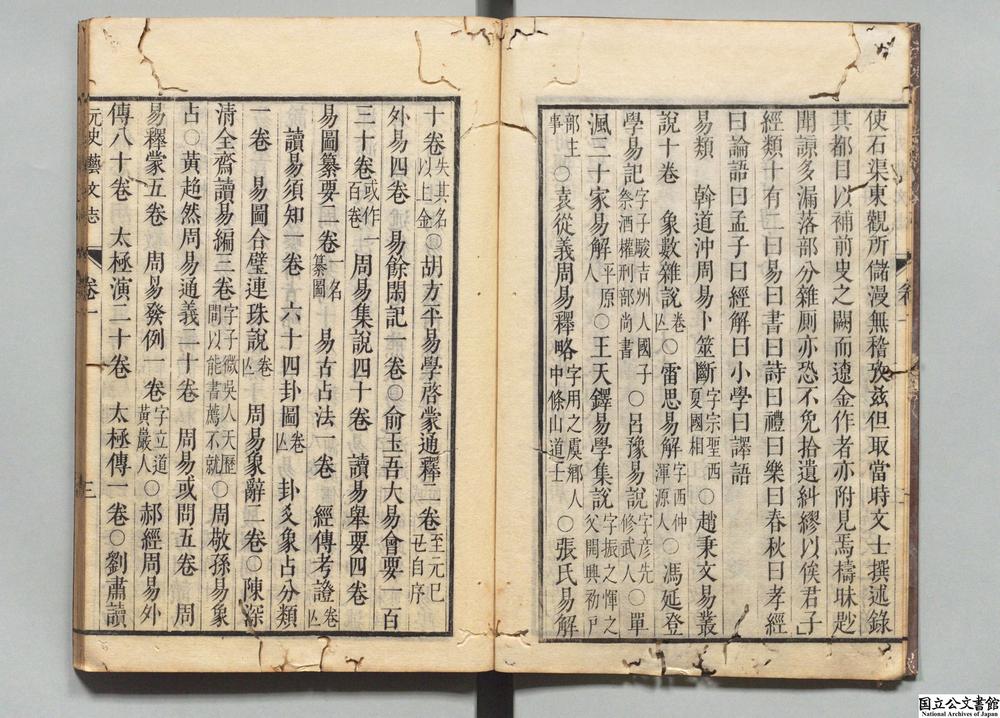 使石渠東觀所儲漫無稽攷茲但取當時文士撰述錄
其都目以補前史之闕而遼金作者亦附見焉檮昧尟
聞諒多漏落部分雜厠亦恐不免拾遺糾繆以俟君子
經類十有二曰易曰書曰詩曰禮曰樂曰春秋曰孝經
曰論語曰孟子曰經解曰小學曰譯語
易類 斡道沖周易卜筮斷字宗聖西夏國相○趙秉文易叢
說十卷 象數雜說卷亾○雷思易解字西仲渾源人○馮延登
學易記字子駿吉州人國子祭酒權刑部尚書○呂豫易說字彥先修武人○單
渢三十家易解平原人○王天鐸易學集說字振之惲之父開興初戶
部主事○袁從義周易釋略字用之虞鄉人中條山道士○張氏易解
十卷失其名以上金○胡方平易學啓蒙通釋二卷至元己丑自序
外易四卷 易餘閑記一卷○俞玉吾大易會要一百
三十卷或作一百卷 周易集說四十卷 讀易舉要四卷
易圖纂要二卷一名纂圖 易古占法一卷 經傳考證卷亾
讀易須知一卷 六十四卦圖卷亾 卦爻象占分類
一卷 易圖合璧連珠說卷亾 周易象辭二卷○陳深
清全齋讀易編三卷字子微吳人天歷間以能書薦不就○周敬孫易象
占○黃超然周易通義二十卷 周易或問五卷 周
易釋蒙五卷 周易發例一卷字立道黃巖人○郝經周易外
傳八十卷 太極演二十卷 太極傳一卷○劉肅讀
元史藝文志 卷一 三
国立公文書館
National Archives of Japan